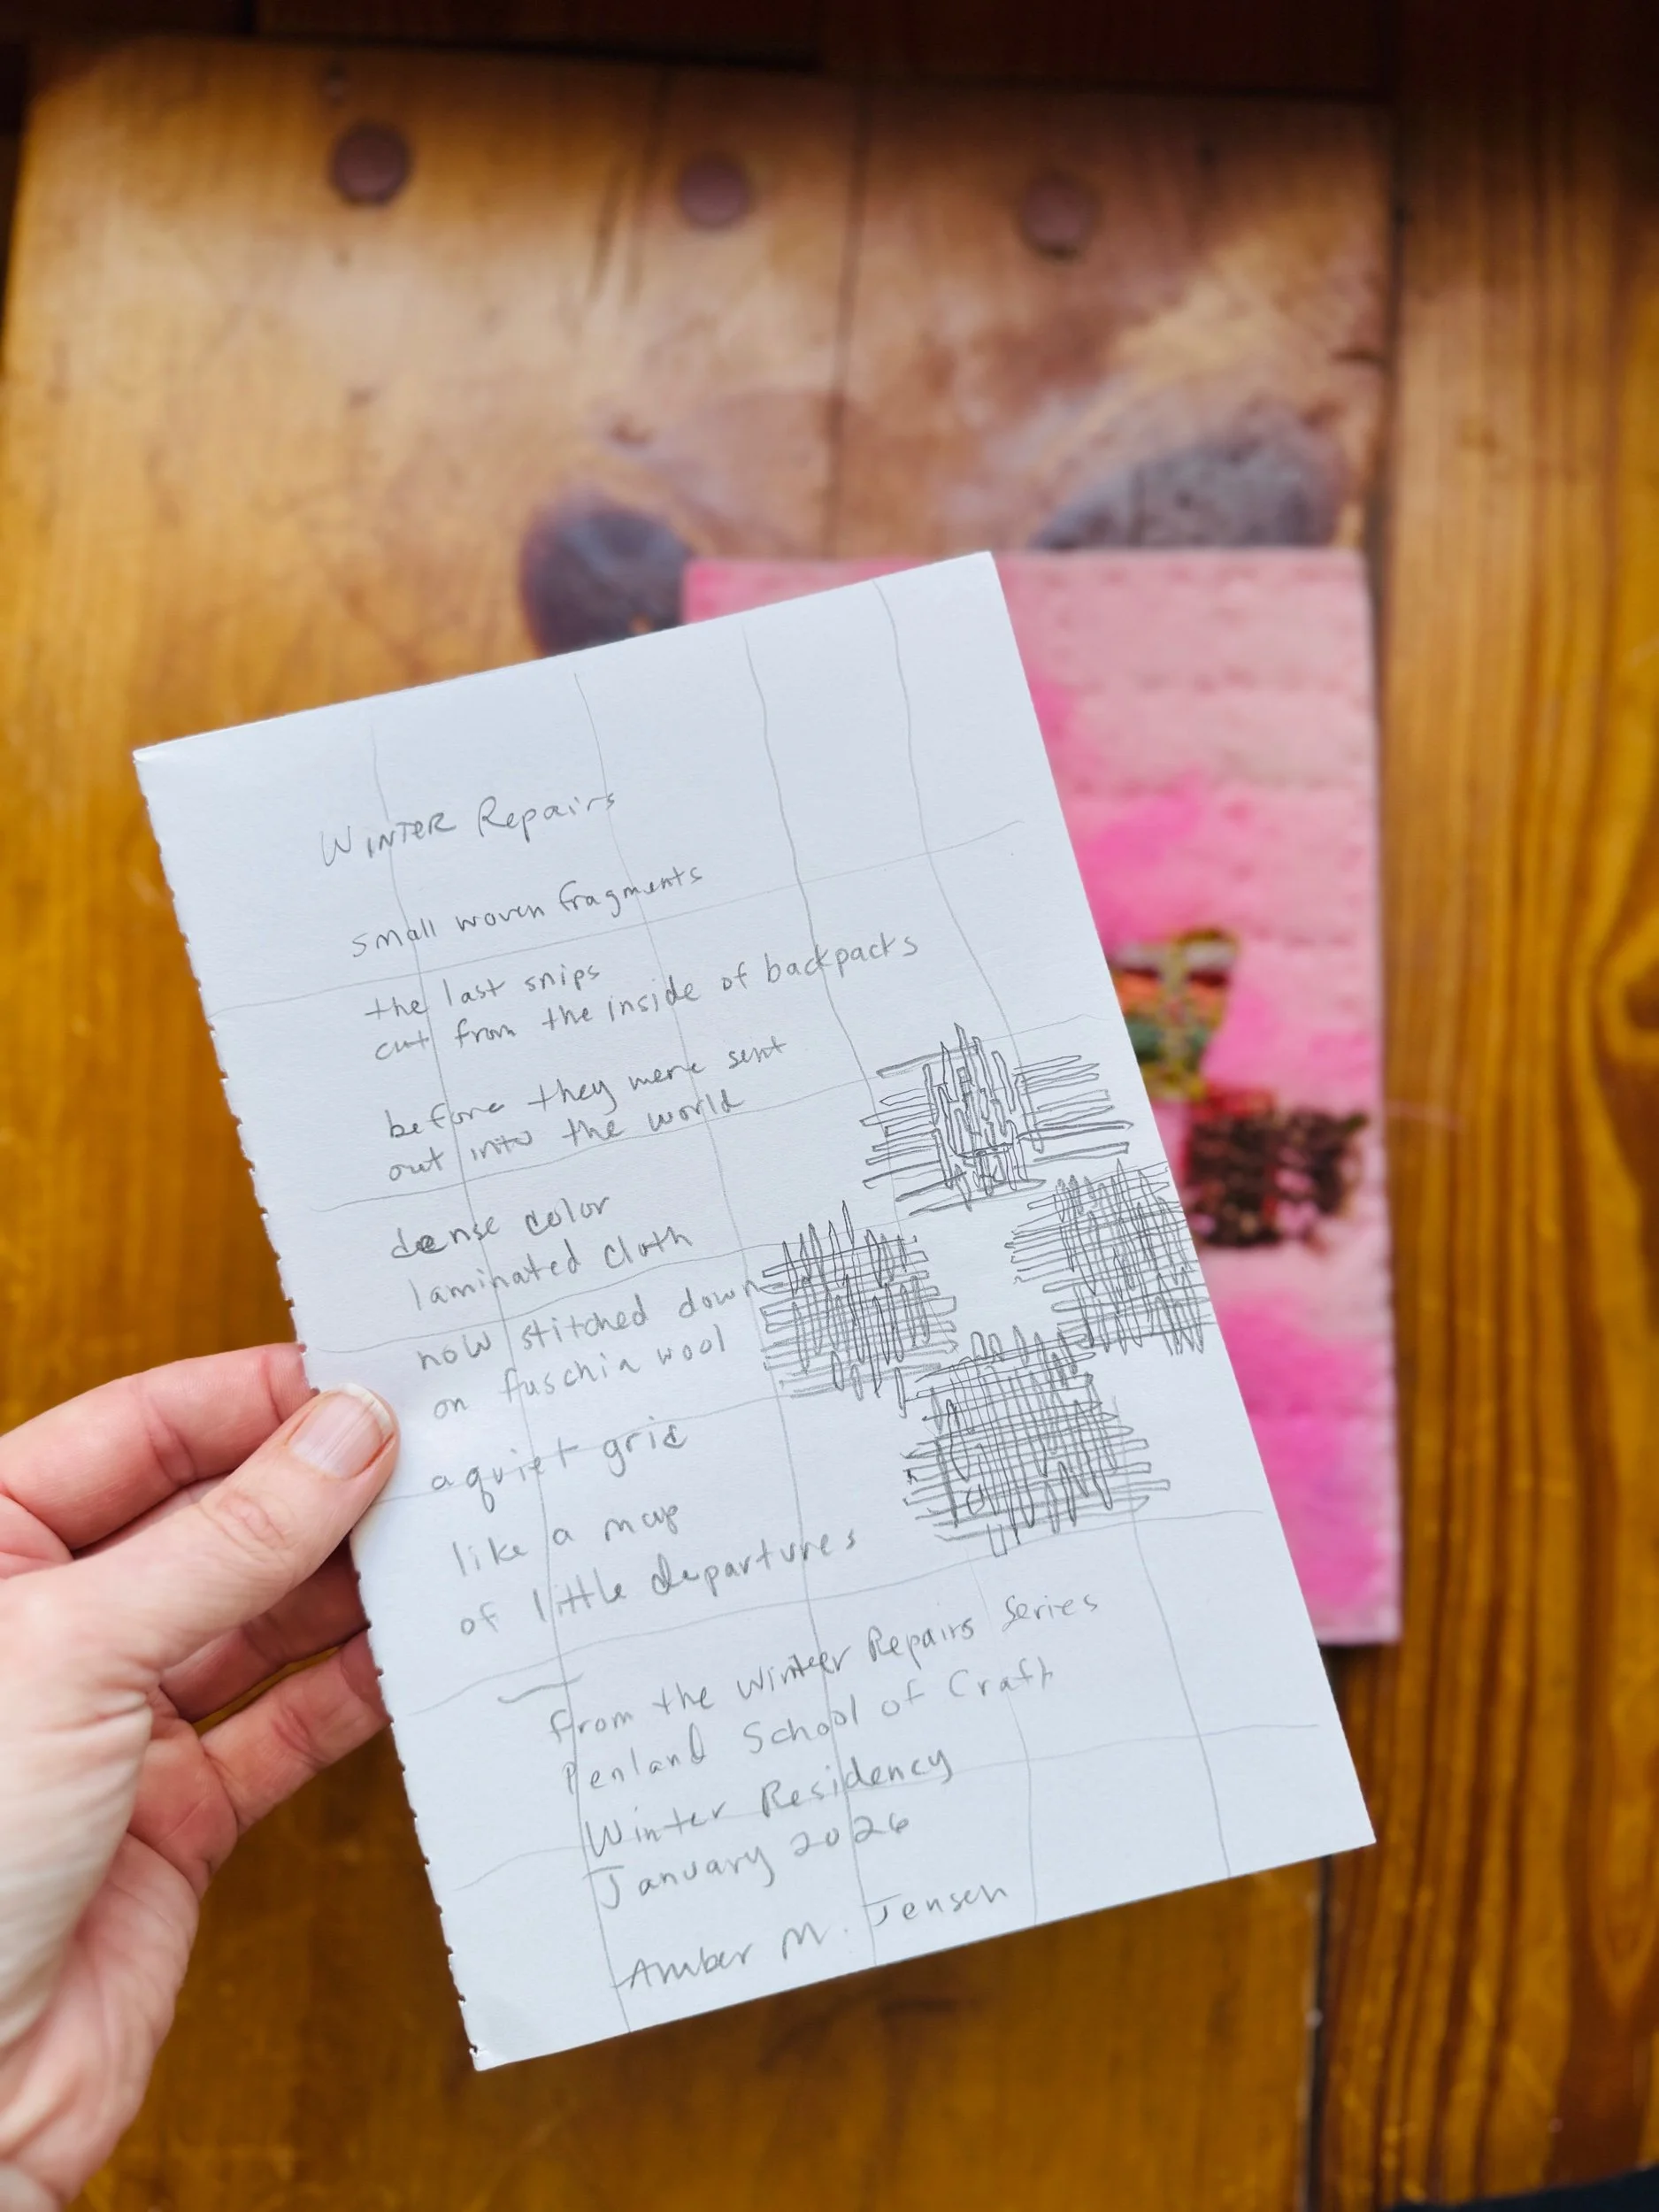 WINTER Repairs
small woven fragments
the last snips
cut from the inside of backpacks
before they were sent
out into the world
dense color
laminated cloth
now stitched down
on fuschia wool
a quiet grid
like a map
of little departures
from the Winter Repairs Series
Penland School of Craft
Winter Residency
January 2026
Amber M. Jensen